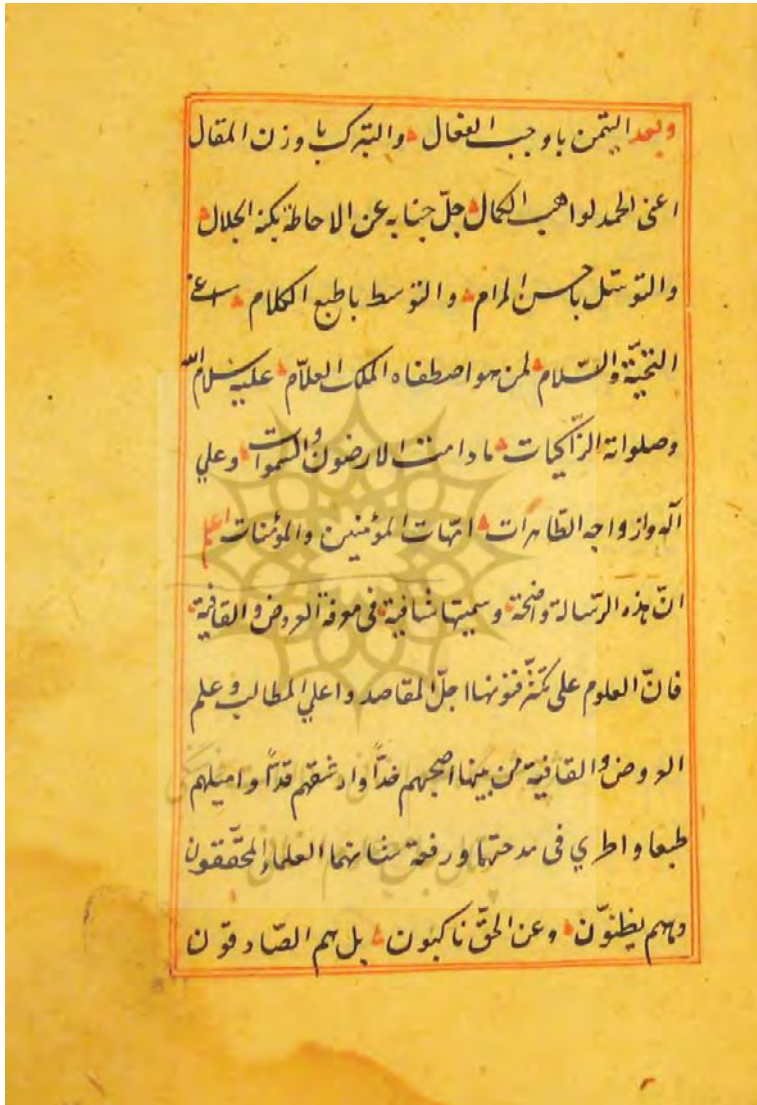 وبعد التيمن باوجب الفعال والتبرك باوزن المقال
اعنى الحمد لواهب الكمال جلّ جنابه عن الاحاطة بكنه الجلال
والتوسّل باحسن المرام والتوسط باطبع الكلام اعنى
التحيّة والسّلام لمن هو اصطفاه الملك العلاّم عليه سلام اللّه
وصلواته الزّاكيات مادامت الارضون والسّموات وعلي
آله وازواجه الطّاهرات امّهات المؤمنين والمؤمنات اعلم
انّ هذه الرّسالة واضحة وسميتها شافية فى معرفة العروض والقافية
فانّ العلوم على تكثّر فنونها اجلّ المقاصد واعلي المطالب وعلم
العروض والقافية من بينها اصبحهم خدّاً وارشقهم قدّاً واميلهم
طبعا واطري فى مدحتها ورفعة شانهما العلماء المحقّقون
وهم يظنوّن وعن الحقّ ناكبون بل هم الصّادقون